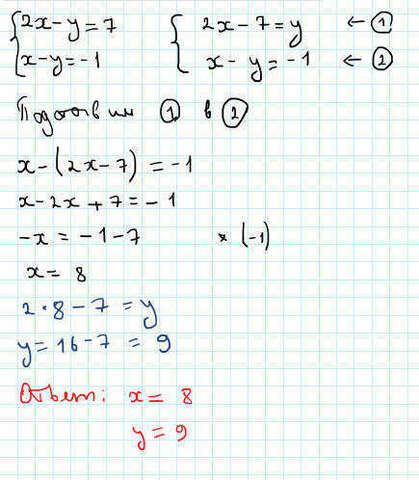 2x-y=7 2x-7=y ← ①
x-y=-1 x-y=-1 ← ②
Подставим ① в ②
x-(2x-7)=-1
x-2x+7=-1
-x=-1-7 * (-1)
x=8
2·8-7=y
y=16-7=9
Ответ: x=8
y=9